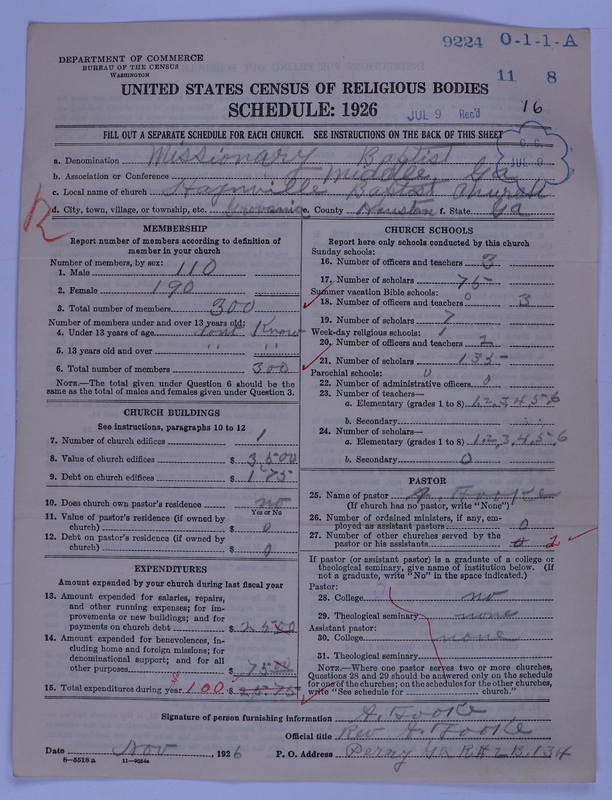 9224 O-1-1-A
DEPARTMENT OF COMMERCE
BUREAU OF THE CENSUS
WASHINGTON
11 8
UNITED STATES CENSUS OF RELIGIOUS BODIES
SCHEDULE: 1926
JUL 9 Rec'd
16
FILL OUT A SEPARATE SCHEDULE FOR EACH CHURCH. SEE INSTRUCTIONS ON THE BACK OF THIS SHEET
JUL 9
a. Denomination Missionary Baptist
b. Association or Conference Middle Ga
c. Local name of church Haynville Baptist Church
d. City, town, village, or township, etc. Grovania e. County Houston f. State Ga
R
MEMBERSHIP
Report number of members according to definition of
member in your church
Number of members, by sex:
1. Male 110
2. Female 190
3. Total number of members 300
Number of members under and over 13 years old:
4. Under 13 years of age dont Know
5. 13 years old and over " "
6. Total number of members 300
NOTE.—The total given under Question 6 should be
same as the total of males and females given under Question 3.
CHURCH BUILDINGS
See instructions, paragraphs 10 to 12
7. Number of church edifices 1
8. Value of church edifices $ 3500
9. Debt on church edifices $ 175
10. Does church own pastor's residence no
Yes or No
11. Value of pastor's residence (if owned by
church) $ 0
12. Debt on pastor's residence (if owned by
church) $ 0
EXPENDITURES
Amount expended by your church during last fiscal year
13. Amount expended for salaries, repairs,
and other running expenses; for im-
provements or new buildings; and for
payments on church debt $ 25 00
14. Amount expended for benevolences, in-
cluding home and foreign missions; for
denominational support; and for all
other purposes $ 75 00
15. Total expenditures during year $ 100. $ 25.75
CHURCH SCHOOLS
Report here only schools conducted by this church
Sunday schools:
16. Number of officers and teachers 3
17. Number of scholars 75
Summer vacation Bible schools:
18. Number of officers and teachers 0 3
19. Number of scholars 7
Week-day religious schools:
20. Number of officers and teachers 2
21. Number of scholars 135
Parochial schools: 0
22. Number of administrative officers 0
23. Number of teachers—
a. Elementary (grades 1 to 8) 1,2,3,4,5-6
b. Secondary
24. Number of scholars—
a. Elementary (grades 1 to 8) 1,2,3,4,5-6
b. Secondary 0
PASTOR
25. Name of pastor A. Fooke
(If church has no pastor, write "None")
26. Number of ordained ministers, if any, em-
ployed as assistant pastors 0
27. Number of other churches served by the
pastor or his assistants 0 2
If pastor (or assistant pastor) is a graduate of a college or
theological seminary, give name of institution below. (If
not a graduate, write "No" in the space indicated.)
Pastor:
28. College no
29. Theological seminary none
Assistant pastor:
30. College none
31. Theological seminary
NOTE.—Where one pastor serves two or more churches,
Questions 28 and 29 should be answered only on the schedule
for one of the churches; on the schedules for the other churches,
write "See schedule for church."
Signature of person furnishing information A. Fooke
Official title Rev A. Fooke
Date Nov 1926 P. O. Address Perry Ga R#2 B. 134
8—5518a 11—9084a